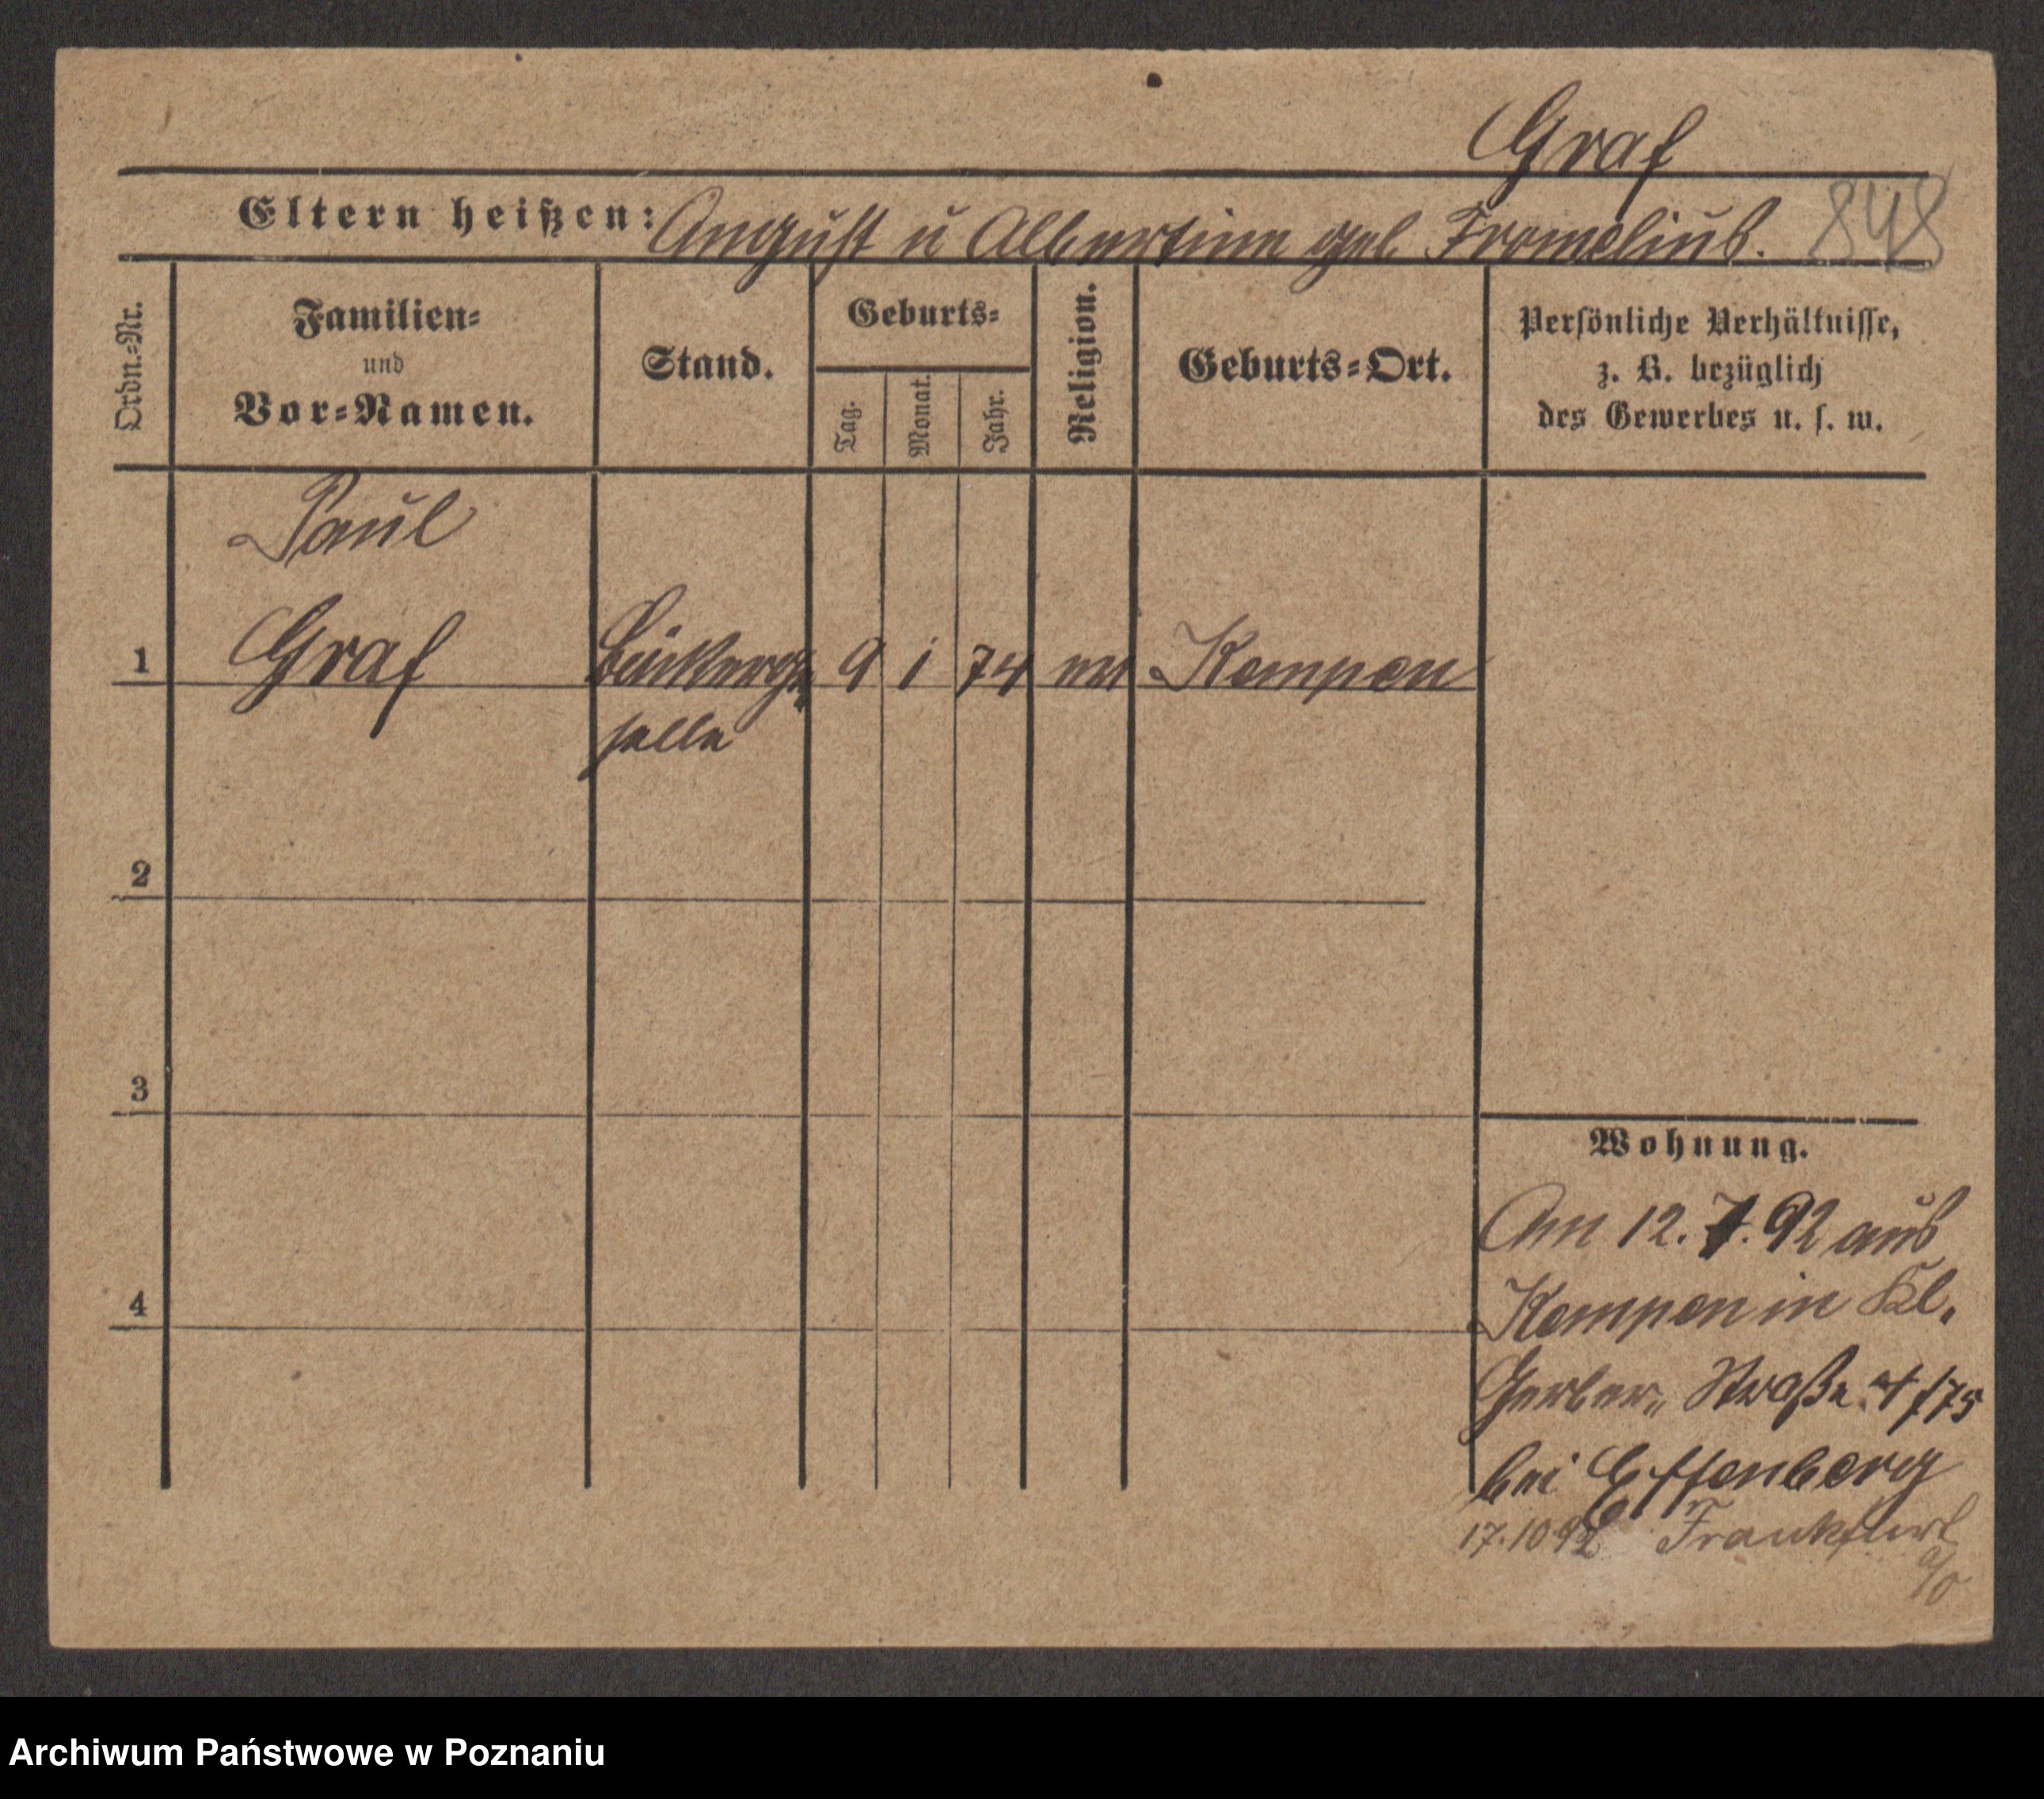 Graf
Eltern heißen: August u Albertine geb. Fromelius.
848
Ordn.=Nr.
Familien=
und
Vor=Namen.
Stand.
Geburts=
Tag.
Monat.
Jahr.
Religion.
Geburts=Ort.
Persönliche Verhältnisse,
z. B. bezüglich
des Gewerbes u. s. w.
Paul
1 Graf Bäckerge= 9 1 74 Kempen
selle
2
3
4
Wohnung.
Am 12. 7. 92 aus
Kempen in Kl.
Gerber= Straße
bei Effenberg
17.10 92 Frankfurt
a/O
Archiwum Państwowe w Poznaniu